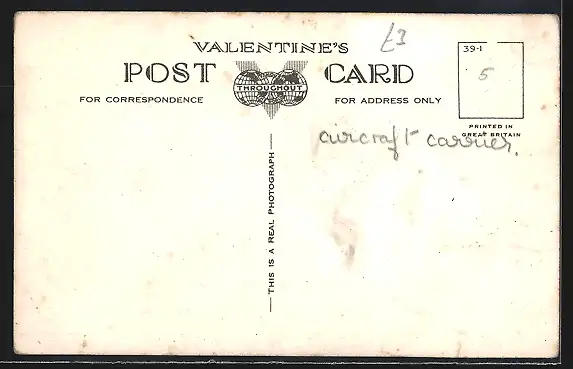 VALENTINE'S
£3
POST CARD
39-1
5
THROUGHOUT
FOR CORRESPONDENCE
FOR ADDRESS ONLY
PRINTED IN
GREAT BRITAIN
aircraft carrier.
THIS IS A REAL PHOTOGRAPH